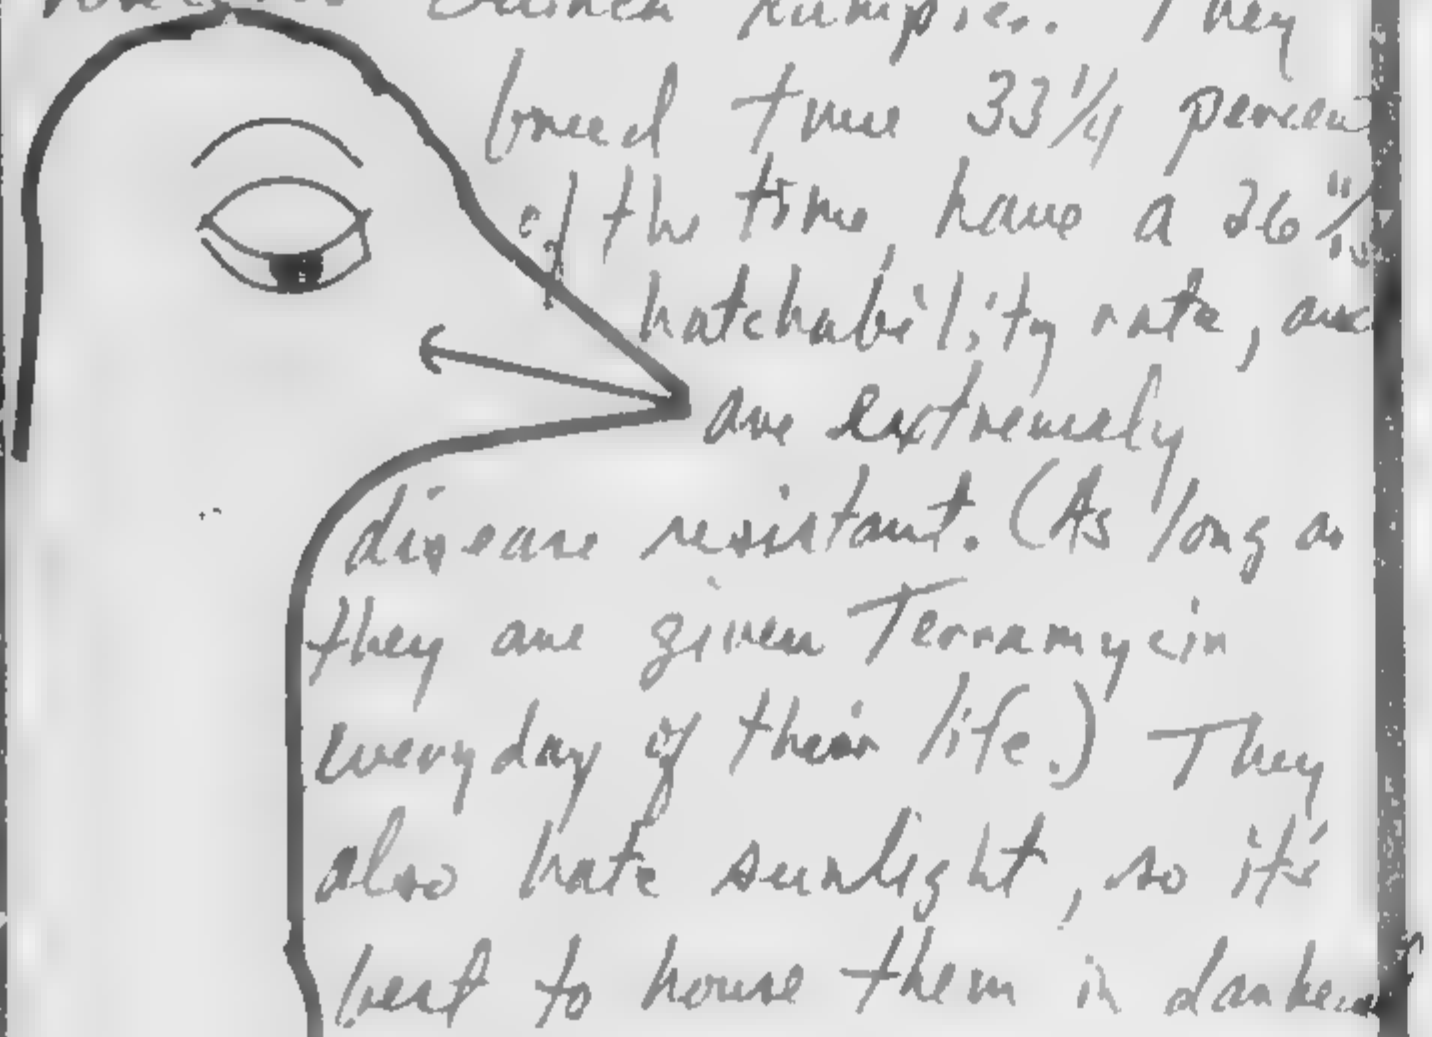 Rumpies. They
breed true 33 1/4 percen
of the time, have a 26 11/
hatchability rate, and
are extremely
disease resistant. (As long as
they are given Terramycin
everyday of their life.) They
also hate sunlight, so it's
best to house them in darken